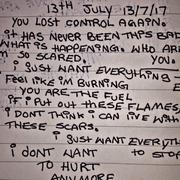 13TH JULY 13/7/17
YOU LOST CONTROL AGAIN.
it HAS NEVER BEEN THIS BAD
WHAT IS HAPPENING. WHO ARE
i'M SO SCARED. YOU.
i JUST WANT EVERYTHING
FEEL LIKE i'M BURNING
YOU ARE THE FUEL
if i PUT OUT THESE FLAMES,
i DON'T THINK i CAN LIVE WITH
THESE SCARS.
i JUST WANT EVERYTH
i DONT WANT TO STOP
TO HURT
ANYMORE